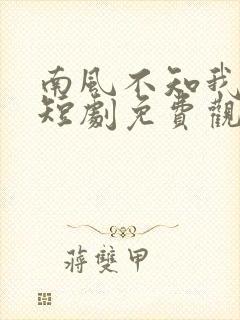 南風不知我
短劇免費觀
蔣雙甲